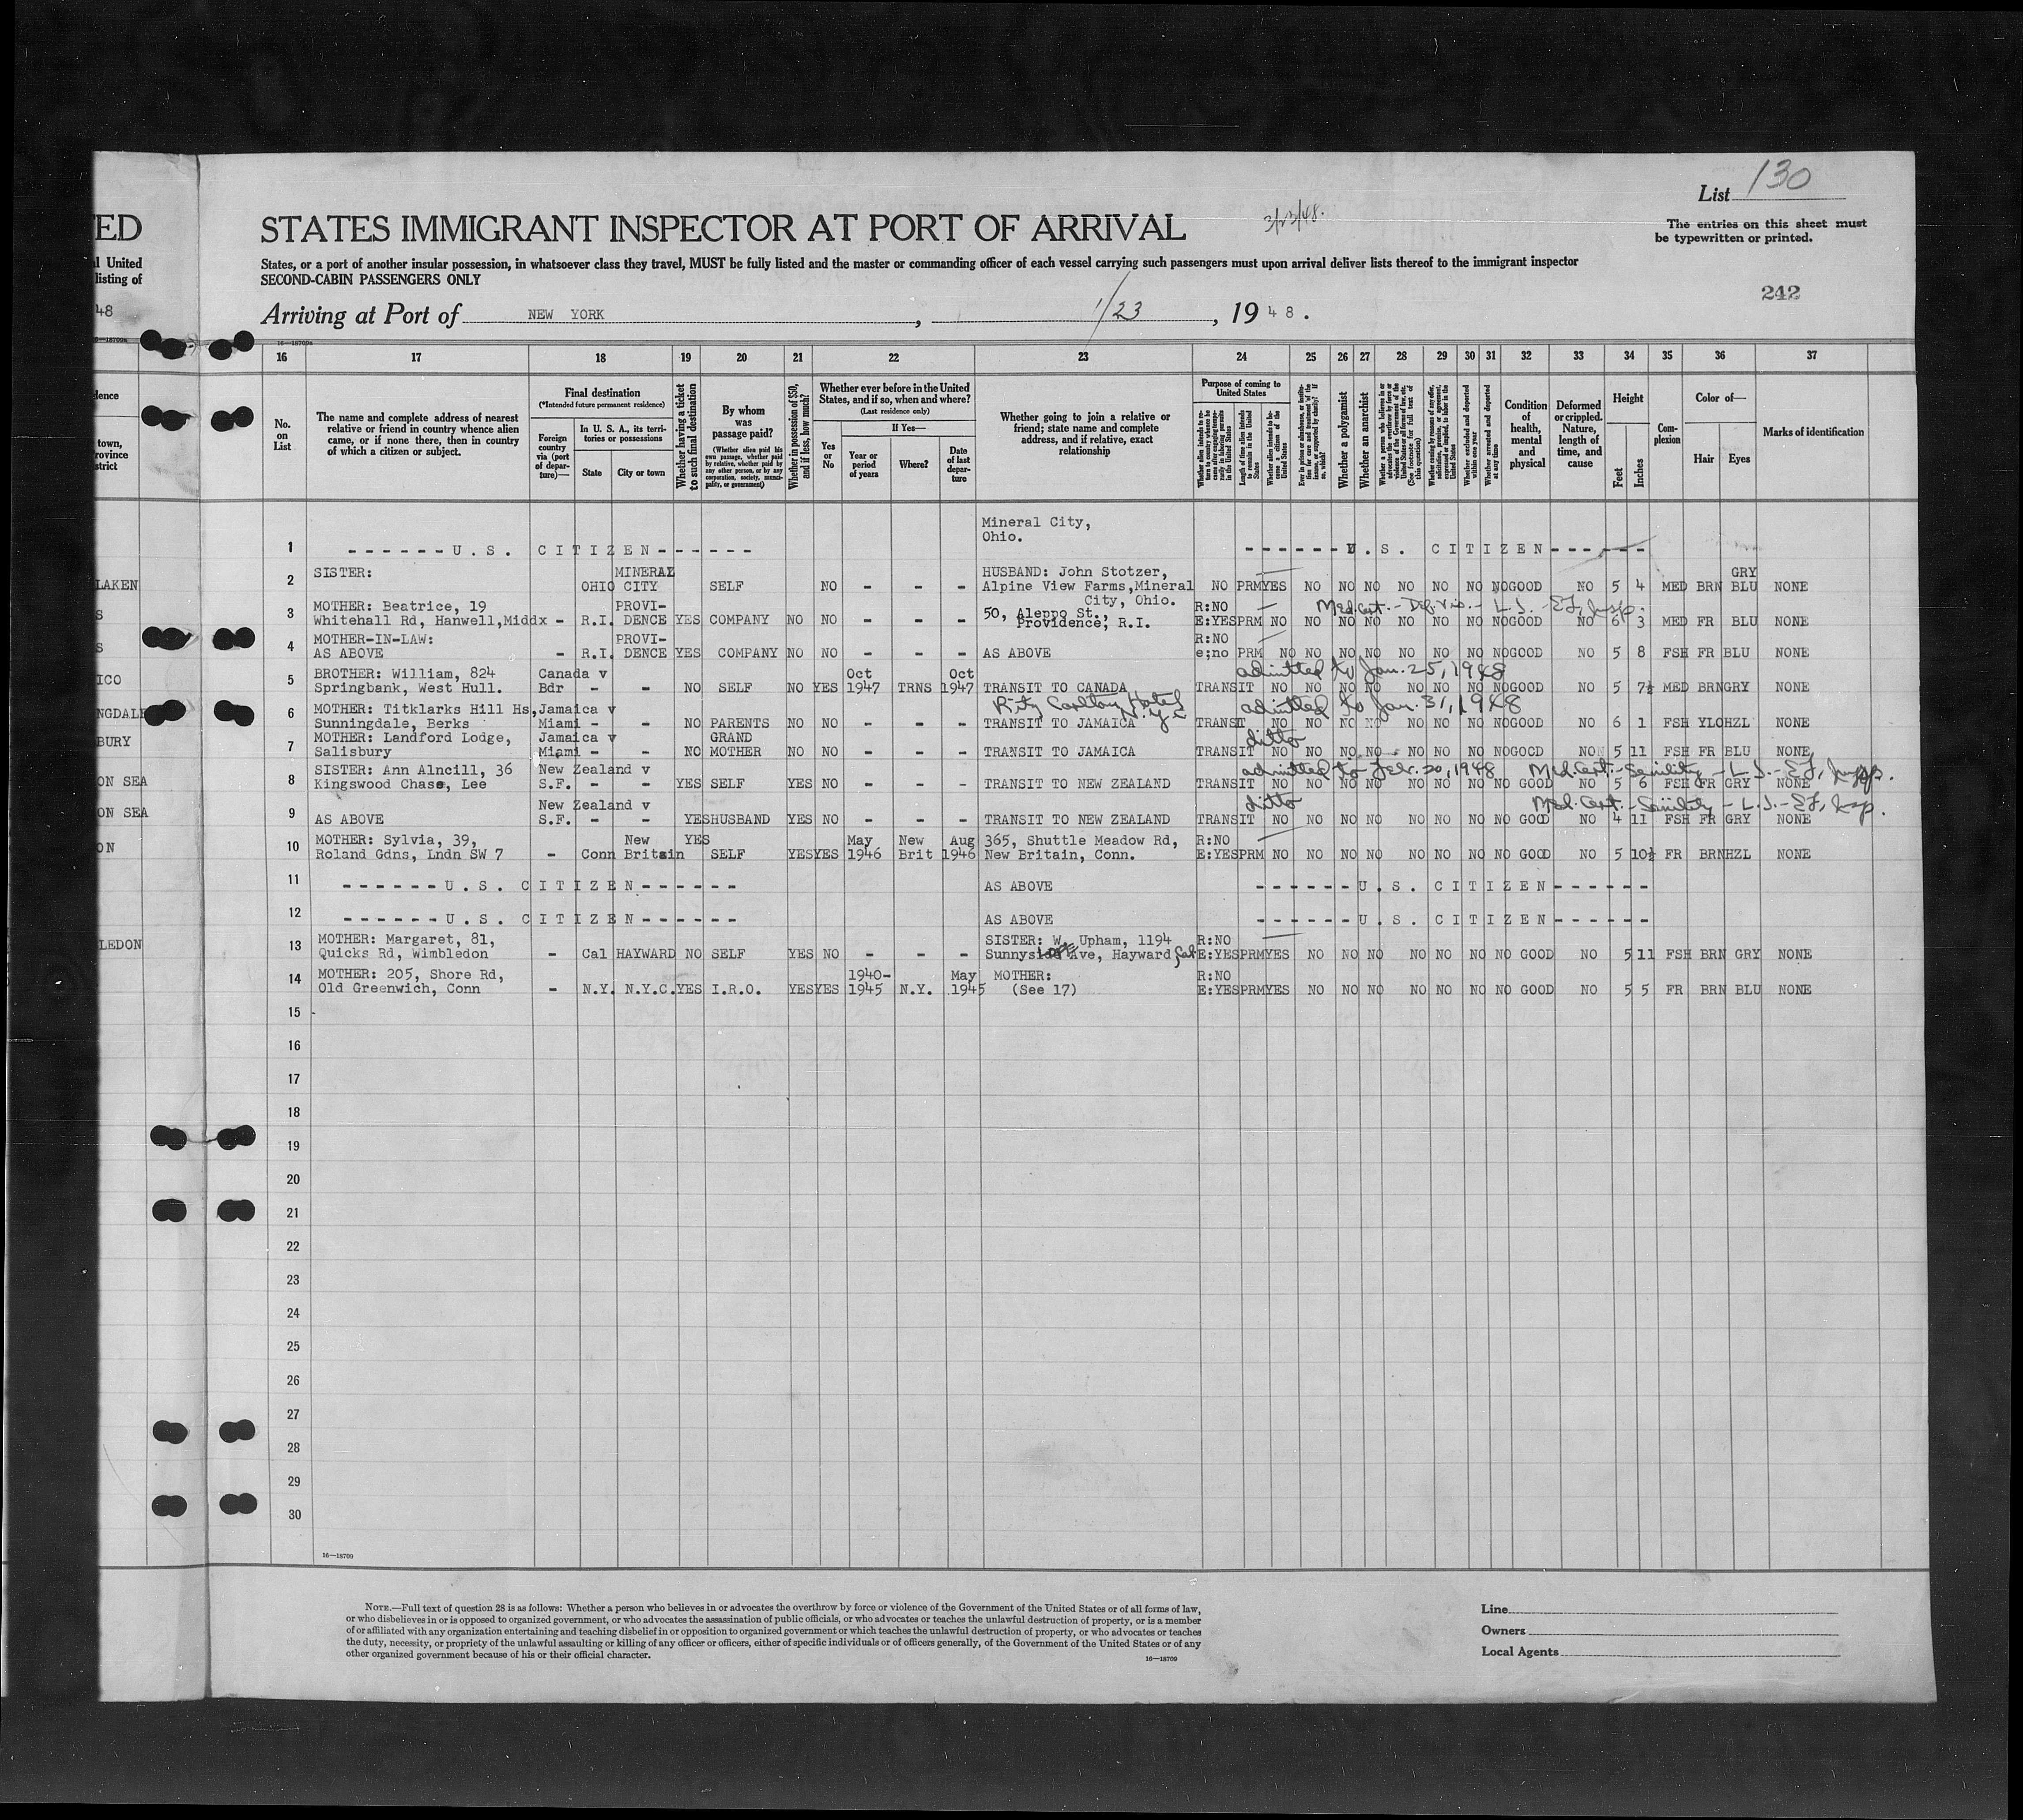 List 130
3/23/48.
ED
STATES IMMIGRANT INSPECTOR AT PORT OF ARRIVAL
The entries on this sheet must
be typewritten or printed.
al United
listing of
States, or a port of another insular possession, in whatsoever class they travel, MUST be fully listed and the master or commanding officer of each vessel carrying such passengers must upon arrival deliver lists thereof to the immigrant inspector
SECOND-CABIN PASSENGERS ONLY
242
48
Arriving at Port of NEW YORK , 1/23 , 19 48.
16—18709a
16 17 18 19 20 21 22 23 24 25 26 27 28 29 30 31 32 33 34 35 36 37
No. on List
The name and complete address of nearest relative or friend in country whence alien came, or if none there, then in country of which a citizen or subject.
Final destination
(*Intended future permanent residence)
Foreign country via (port of departure)—
In U. S. A., its territories or possessions
State
City or town
Whether having a ticket to such final destination
By whom was passage paid?
(Whether alien paid his own passage, whether paid by relative, whether paid by any other person, or by any corporation, society, municipality, or government)
Whether in possession of $50, and if less, how much?
Whether ever before in the United States, and if so, when and where?
(Last residence only)
Yes or No
If Yes—
Year or period of years
Where?
Date of last departure
Whether going to join a relative or friend; state name and complete address, and if relative, exact relationship
Purpose of coming to United States
Length of time alien intends to remain in the United States
Whether alien intends to become a citizen of the United States
Whether a polygamist
Whether an anarchist
Whether excluded and deported within one year
Whether arrested and deported at any time
Condition of health, mental and physical
Deformed or crippled. Nature, length of time, and cause
Height
Feet
Inches
Complexion
Color of—
Hair
Eyes
Marks of identification
Mineral City,
Ohio.
1 - - - - - - U. S. CITIZEN - - - - - - - - - - - - U. S. CITIZEN - - - - - -
LAKEN
2 SISTER: OHIO MINERAL CITY SELF NO - - - HUSBAND: John Stotzer, Alpine View Farms, Mineral City, Ohio. NO PRM YES NO NO NO NO NO NO NO GOOD NO 5 4 MED BRN GRY BLU NONE
3 MOTHER: Beatrice, 19 Whitehall Rd, Hanwell, Middx - R.I. PROVI-DENCE YES COMPANY NO NO - - - 50, Aleppo St., Providence, R.I. R:NO E:YES PRM NO NO NO NO NO NO NO NO GOOD NO 6 3 MED FR BLU NONE
4 MOTHER-IN-LAW: AS ABOVE - R.I. PROVI-DENCE YES COMPANY NO NO - - - AS ABOVE R:NO e;no PRM NO NO NO NO NO NO NO NO GOOD NO 5 8 FSH FR BLU NONE
ICO
admitted to Jan. 25, 1948
5 BROTHER: William, 824 Springbank, West Hull. Canada v Bdr - - NO SELF NO YES Oct 1947 TRNS Oct 1947 TRANSIT TO CANADA TRANSIT NO NO NO NO NO NO NO NO GOOD NO 5 7½ MED BRN GRY NONE
NGDALE
Ritz Carlton Hotel N.Y.C. admitted to Jan. 31, 1948
6 MOTHER: Titklarks Hill Hs, Sunningdale, Berks Jamaica v Miami - - NO PARENTS NO NO - - - TRANSIT TO JAMAICA TRANSIT NO NO NO NO NO NO NO NO GOOD NO 6 1 FSH YLO HZL NONE
BURY
ditto
7 MOTHER: Landford Lodge, Salisbury Jamaica v Miami - - NO GRAND MOTHER NO NO - - - TRANSIT TO JAMAICA TRANSIT NO NO NO NO NO NO NO NO GOOD NO 5 11 FSH FR BLU NONE
ON SEA
admitted to Febr. 20, 1948 Med. Cert. - Senility
8 SISTER: Ann Alncill, 36 Kingswood Chase, Lee New Zealand v S.F. - - YES SELF YES NO - - - TRANSIT TO NEW ZEALAND TRANSIT NO NO NO NO NO NO NO NO GOOD NO 5 6 FSH FR GRY NONE
ON SEA
ditto Med. Cert. - Senility
9 AS ABOVE New Zealand v S.F. - - YES HUSBAND YES NO - - - TRANSIT TO NEW ZEALAND TRANSIT NO NO NO NO NO NO NO NO GOOD NO 4 11 FSH FR GRY NONE
ON
10 MOTHER: Sylvia, 39, Roland Gdns, Lndn SW 7 - Conn New Britain YES SELF YES YES May 1946 New Brit Aug 1946 365, Shuttle Meadow Rd, New Britain, Conn. R:NO E:YES PRM NO NO NO NO NO NO NO NO GOOD NO 5 10½ FR BRN HZL NONE
11 - - - - - - U. S. CITIZEN - - - - - - AS ABOVE - - - - - - U. S. CITIZEN - - - - - -
12 - - - - - - U. S. CITIZEN - - - - - - AS ABOVE - - - - - - U. S. CITIZEN - - - - - -
LEDON
13 MOTHER: Margaret, 81, Quicks Rd, Wimbledon - Cal HAYWARD NO SELF YES NO - - - SISTER: W. Upham, 1194 Sunnyside Ave, Hayward Cal R:NO E:YES PRM YES NO NO NO NO NO NO NO GOOD NO 5 11 FSH BRN GRY NONE
14 MOTHER: 205, Shore Rd, Old Greenwich, Conn - N.Y. N.Y.C. YES I.R.O. YES YES 1940-1945 N.Y. May 1945 MOTHER: (See 17) R:NO E:YES PRM YES NO NO NO NO NO NO NO GOOD NO 5 5 FR BRN BLU NONE
15
16
17
18
19
20
21
22
23
24
25
26
27
28
29
30
16—18709
NOTE.—Full text of question 28 is as follows: Whether a person who believes in or advocates the overthrow by force or violence of the Government of the United States or of all forms of law,
or who disbelieves in or is opposed to organized government, or who advocates the assassination of public officials, or who advocates or teaches the unlawful destruction of property, or is a member
of or affiliated with any organization entertaining and teaching disbelief in or opposition to organized government or which teaches the unlawful destruction of property, or who advocates or teaches
the duty, necessity, or propriety of the unlawful assaulting or killing of any officer or officers, either of specific individuals or of officers generally, of the Government of the United States or of any
other organized government because of his or their official character.
16—18709
Line
Owners
Local Agents